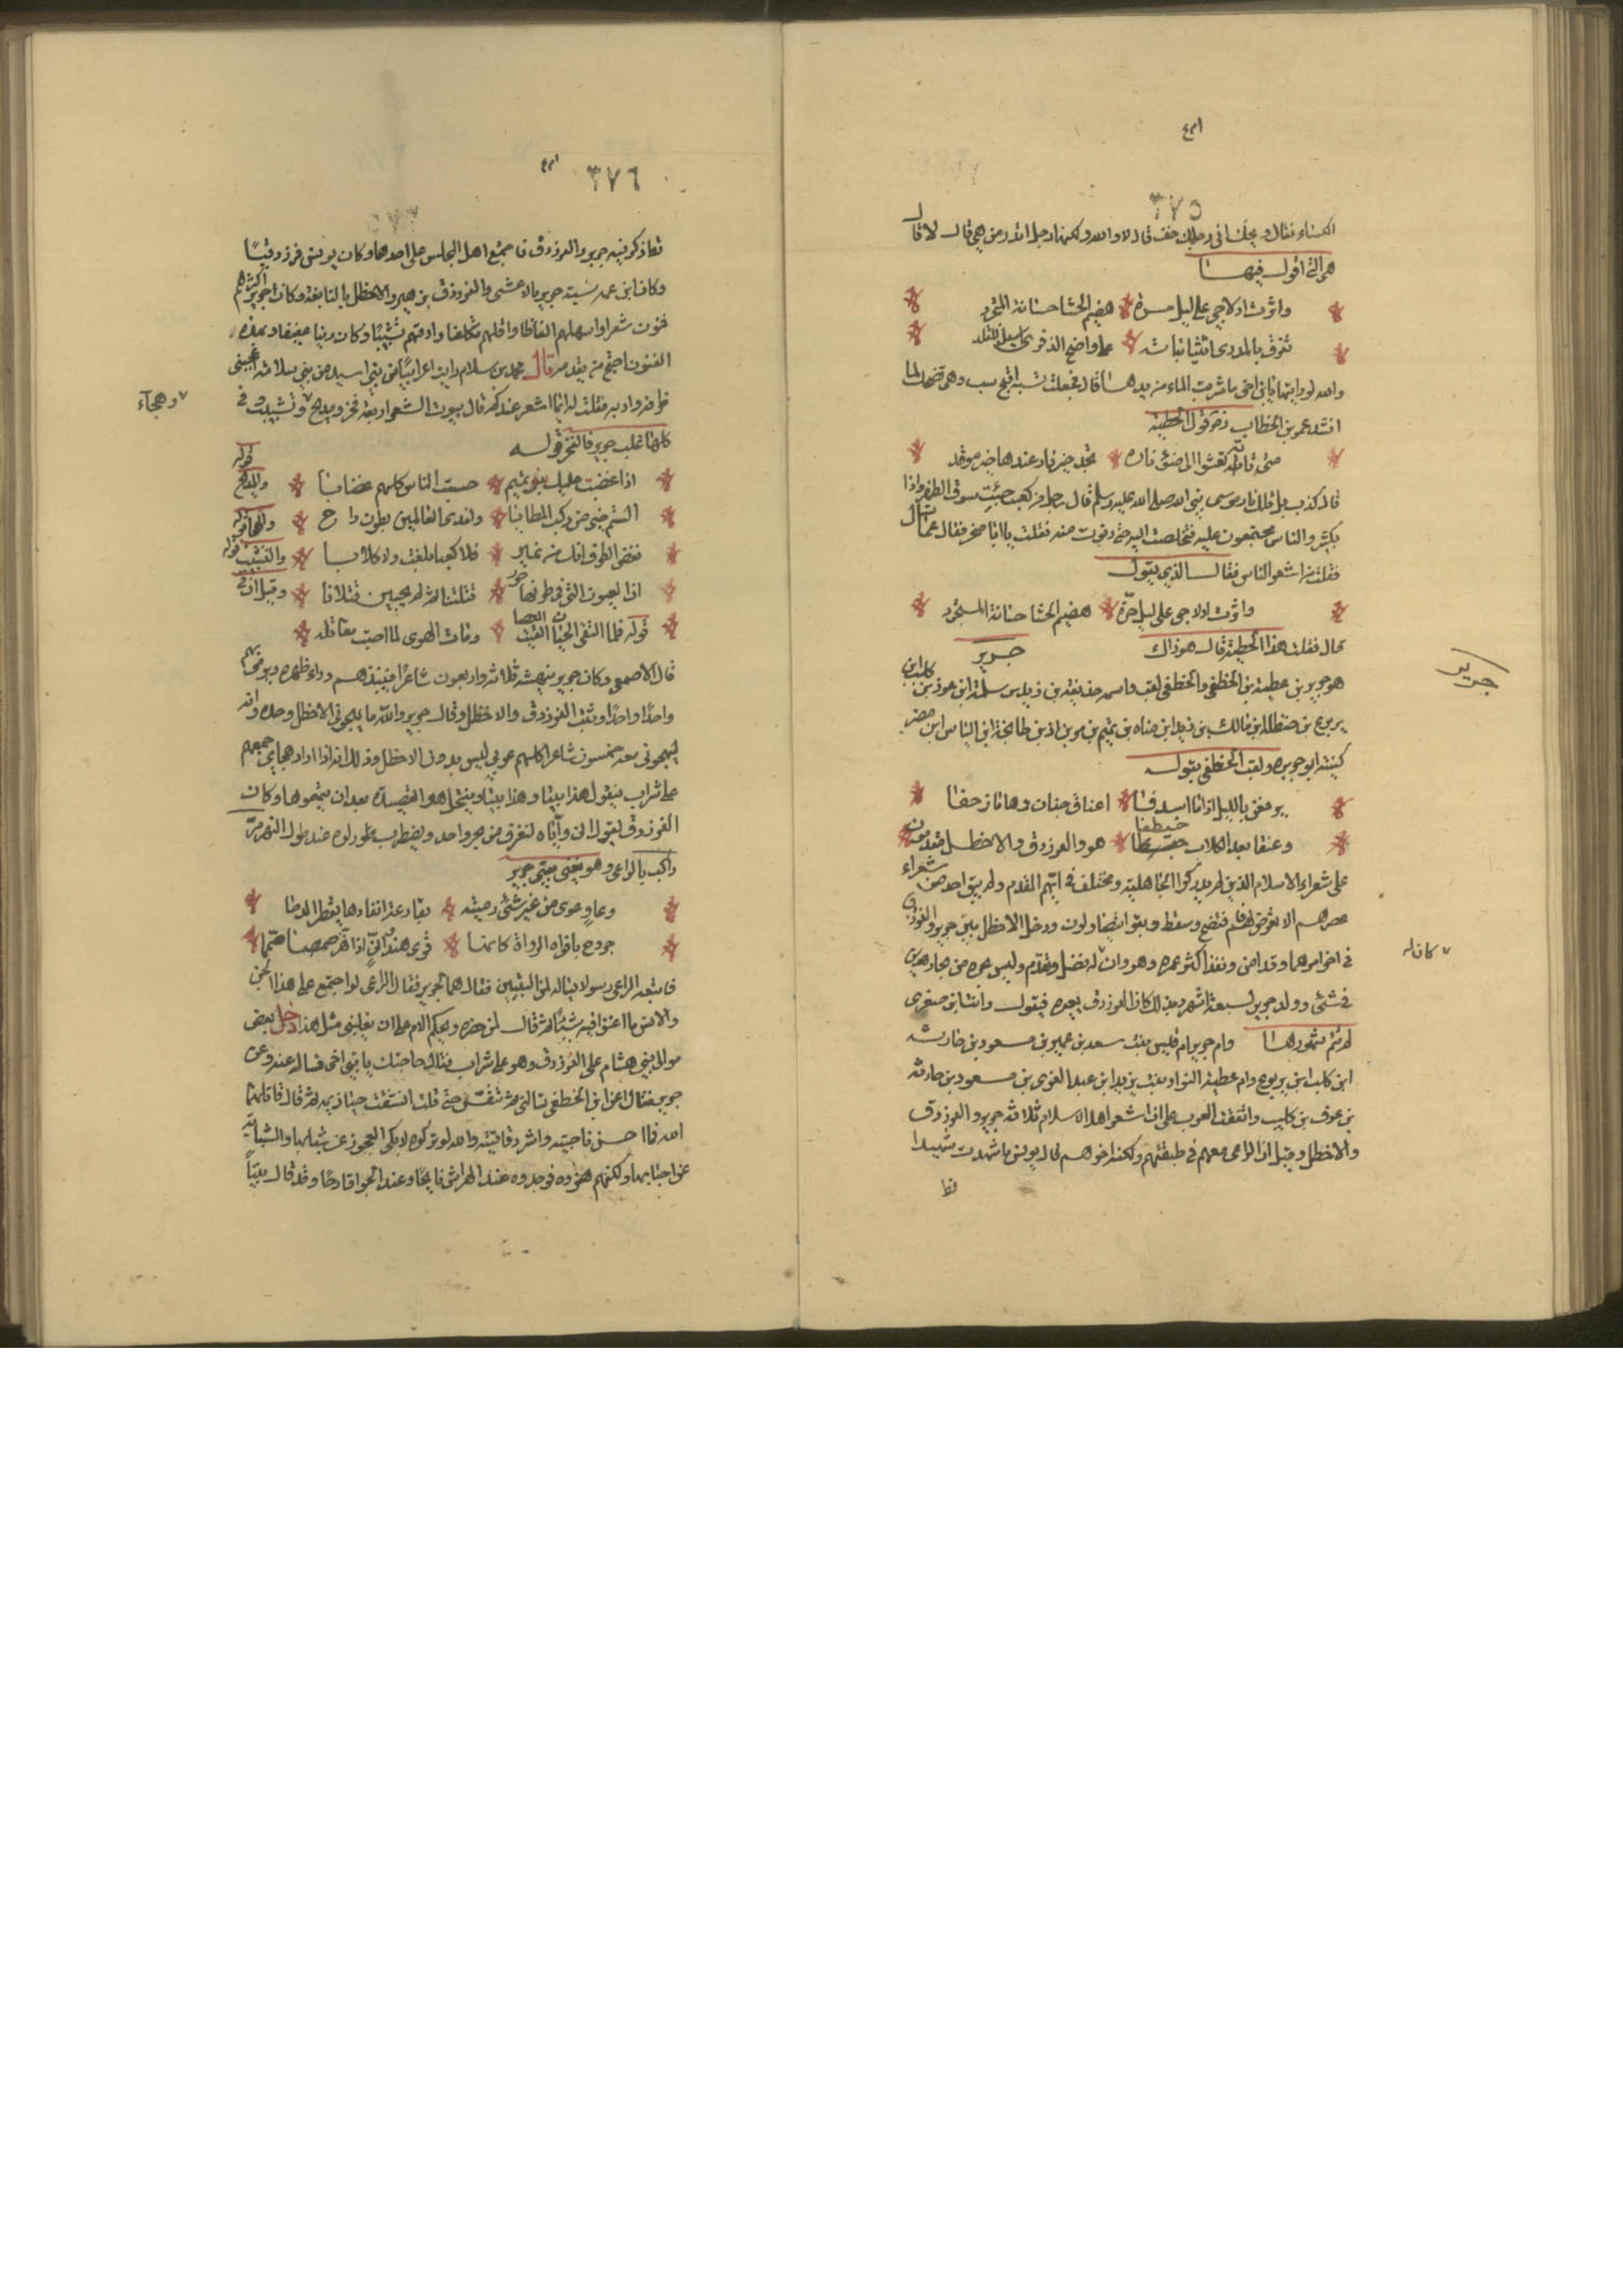 ٣٧٥
الكساء فقال ويحك اني رجل حقت قال لا والله ولكنه رجل اتدرمن هي قال لا قال
هى التى اقول فيها
واثرت ادلاجي على ليل حرة هضيم الحشا حسانة المتجرد
تفرق بالمدرى اثيثا نباته على واضح الذفرى اسيل المقلد
والله لو رايتها يا بن اخى ما شربت الماء من يدها قال فجعلت تسبه اقبح سب وهى تضحك لما
انشد عمر بن الخطاب رضه قول الحطيئة
متى تاته تعشوا الى ضوء ناره تجد خير نار عندها خير موقد
قال كذب بل تلك نار موسى نبى الله صلى الله عليه وسلم قال رجل من كعب جئت سوق الظهر واذا
بكثير والناس مجتمعون عليه فتخلصت اليه حتى دنوت منه فقلت يا ابا صخر فقال ما تشاء
فقلت من اشعر الناس فقال الذى يقول
واثرت ادلاجى على ليل حرّة هضيم الحشا حسانة المتجرد
قال فقلت هذا الحطيئة قال هو ذاك
جرير
جرير
هو جرير بن عطية بن الخطفى والخطفى لقب واسمه حذيفة بن زيد بن سلمة ابن عوف بن كليب ابن
يربوع بن حنظلة ابن مالك بن زيد ابن مناه بن تميم بن مر بن اد بن طابخة ابن الياس ابن مضر
كنيته ابو حرزه ولقب الخطفى بقوله
يرفعن بالليل اذا ما اسدفا اعناق جنان وهاما رجفا
وعنقا بعد الكلال خيطفا هو والفرزدق والاخطل مقدمون
على شعراء الاسلام الذين لم يدركوا الجاهلية ومختلف في ايهم المقدم ولم يبق احد من شعراء
عصرهم الا تعرض لهم فافتضح وسقط وبقوا يتصاولون ودخل الاخطل بين جرير والفرزدق
في اخر امرهما وقد اسن ونفد اكثر عمره وهو وان كان له فضل وتقدم وليس نجره من نجار هذين
فى شئى وولد جرير لسبعة اشهر وبذلك كان الفرزدق يعيره فيقول وانت ابن صغرى
لم تتم شهورها وام جرير ام قيس بنت سعد بن عمير بن مسعود بن حارثه
ابن كلب ابن يربوع وام عطية النوار بنت يزيد ابن عبد العزى بن مسعود بن حارثة
بن عوف بن كليب واتفقت العرب على ان اشعر اهل الاسلام ثلاثة جرير والفرزدق
والاخطل وقيل ان الراعى معهم في طبقتهم ولكنه اخرهم قال يونس ما شهدت مشهدا
قط
٣٧٦
تذاكر فيه جرير والفرزدق فاجتمع اهل المجلس على احدهما وكان يونس فرزدقيًا
وكان ابن عمر يشبه جرير بالاعشى والفرزدق بزهير والاخطل بالنابغة وكان جرير اكثرهم
فنون شعر واسهلهم الفاظا واقلهم تكلفا وارقهم نسيبًا وكان دينا عفيفا وبهذه
الفنون احتج من يقدمه قال محمد بن سلام رايت اعرابيًا من بني اسيد من بني سلامة اعجبنى
ظرفه وادبه فقلت له ايما اشعر عندكم قال بيوت الشعر اربعة فخر ومديح وتشبيب وفي
وهجآء
كلها غلب جرير فالفخر قوله
اذا غضبت عليك بنو تميم حسبت الناس كلهم غضابا والمديح قوله
الستم خير من ركب المطايا واندى العالمين بطون راح والهجا قوله
فغض الطرف انك من نمير فلا كعبا بلغت ولا كلابا والتشبيب قوله
ان العيون التى فى طرفها حور قتلننا ثم لم يحيين قتلانا وقيل ان فى
قوله فلما التقى الحيان القيت العصا ومات الهوى لما اصيبت مقاتله
قال الاصمعى وكان جرير ينهشه ثلاثة واربعون شاعرًا فينبذهم وراء ظهره ويرمى بهم
واحدًا واحدًا وثبت الفرزدق والاخطل وقال جرير والله ما يهجونى الاخطل وحده وانه
ليهجونى معه خمسون شاعرا كلهم عربي ليس بدون الاخطل وذلك انه اذا اراد هجاي جمعهم
على شراب فيقول هذا بيتا وهذا بيتا وينتحل هو القصيدة بعد ان يتمموها وكان
الفرزدق يقول انى وآياه لنغترف من بحر واحد ويضطرب بحوره عند طول النهر مرّ
راكب بالراعى وهو يتغنى ببيتى جرير
وعاوٍ عوى من غير شئى رميته بقارعة انفادها يقطر الدما
خروج بافواه الرواة كانها قرى هندوانيٍّ اذا هز صمصما
فاتبعه الراعى رسولا يساله لمن البيتين فقال هما لجرير فقال الراعى لو اجتمع على هذا الجن
والانس ما اغنوا فيه شيئا ثم قال لمن حضره ويحكم الام على ان يغلبنى مثل هذا دخل بعض
موالى بنى هشام على الفرزدق وهو على شراب فقال حاجتك يا بن اخى فساله عنه وعن
جرير فقال اعن ابن الخطفى تسالنى ثم تنفس حتى قلت انشقت حيازيمه ثم قال قاتله
الله فما احسن ناجيته واشرد قافيته والله لو تركوه لابكى العجوز عن شبابها والشابة
عن احبابها ولكنهم هزوه فوجدوه عند الهراش نابحًا وعند الجرا قارحًا وقد قال بيتاً